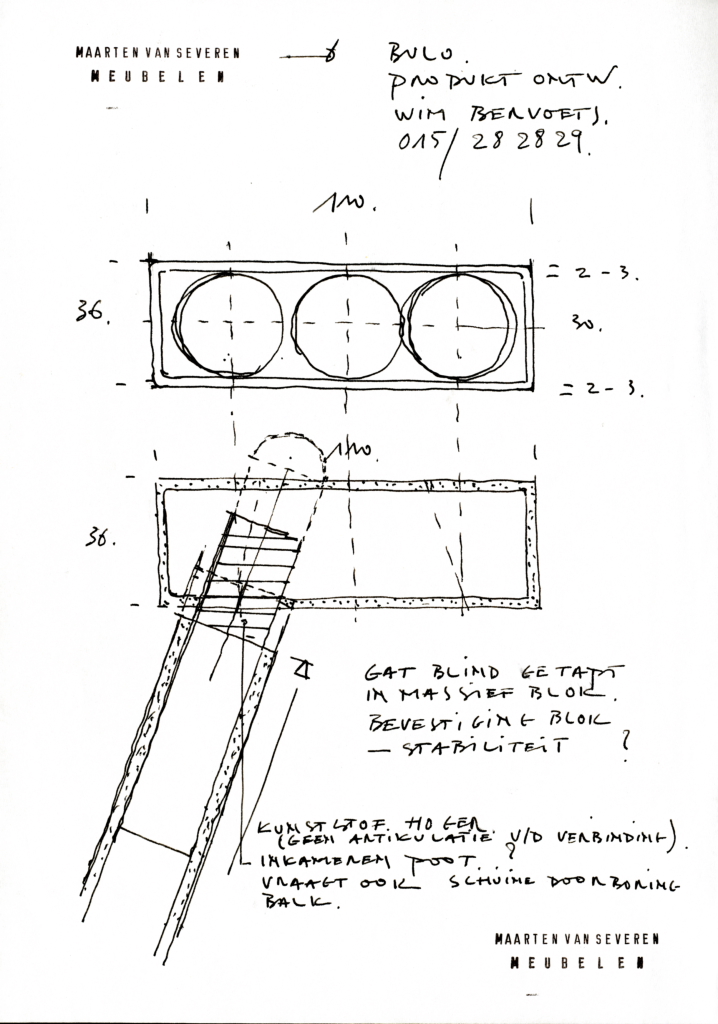 MAARTEN VAN SEVEREN
MEUBELEN
BULO.
PRODUKT ONTW.
WIM BERVOETS.
015/ 28 28 29.
110.
= 2 - 3.
36.
30.
= 2 - 3.
110.
36.
GAT BLIND GETAPT
IN MASSIEF BLOK.
BEVESTIGING BLOK
— STABILITEIT ?
KUNSTSTOF HOGER
(GEEN ARTIKULATIE V/D VERBINDING).
INKAMEREN POOT ?
VRAAGT OOK SCHUINE DOORBORING
BALK.
MAARTEN VAN SEVEREN
MEUBELEN